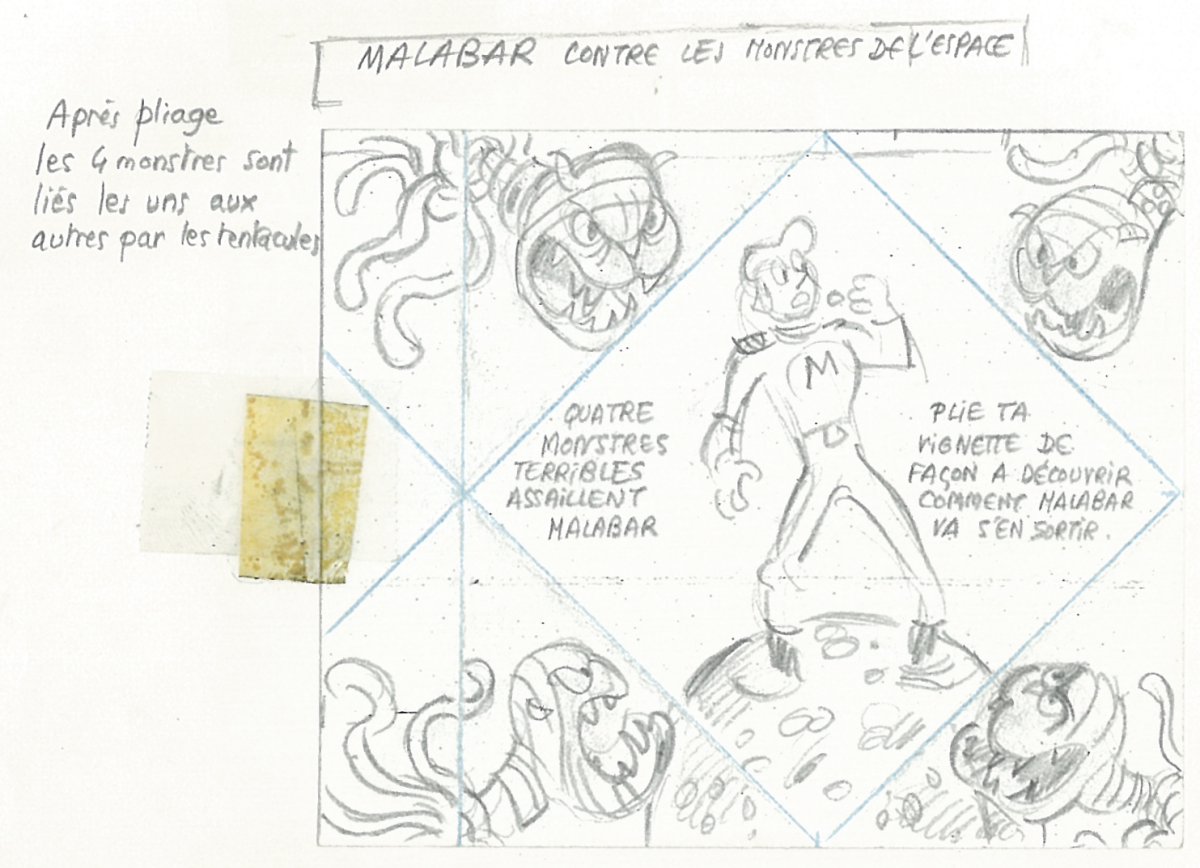 MALABAR CONTRE LES MONSTRES DE L'ESPACE
Aprés pliage
les 4 monstres sont
liés les uns aux
autres par les tentacules
M
QUATRE
MONSTRES
TERRIBLES
ASSAILLENT
MALABAR
PLIE TA
VIGNETTE DE
FAÇON A DÉCOUVRIR
COMMENT MALABAR
VA S'EN SORTIR.